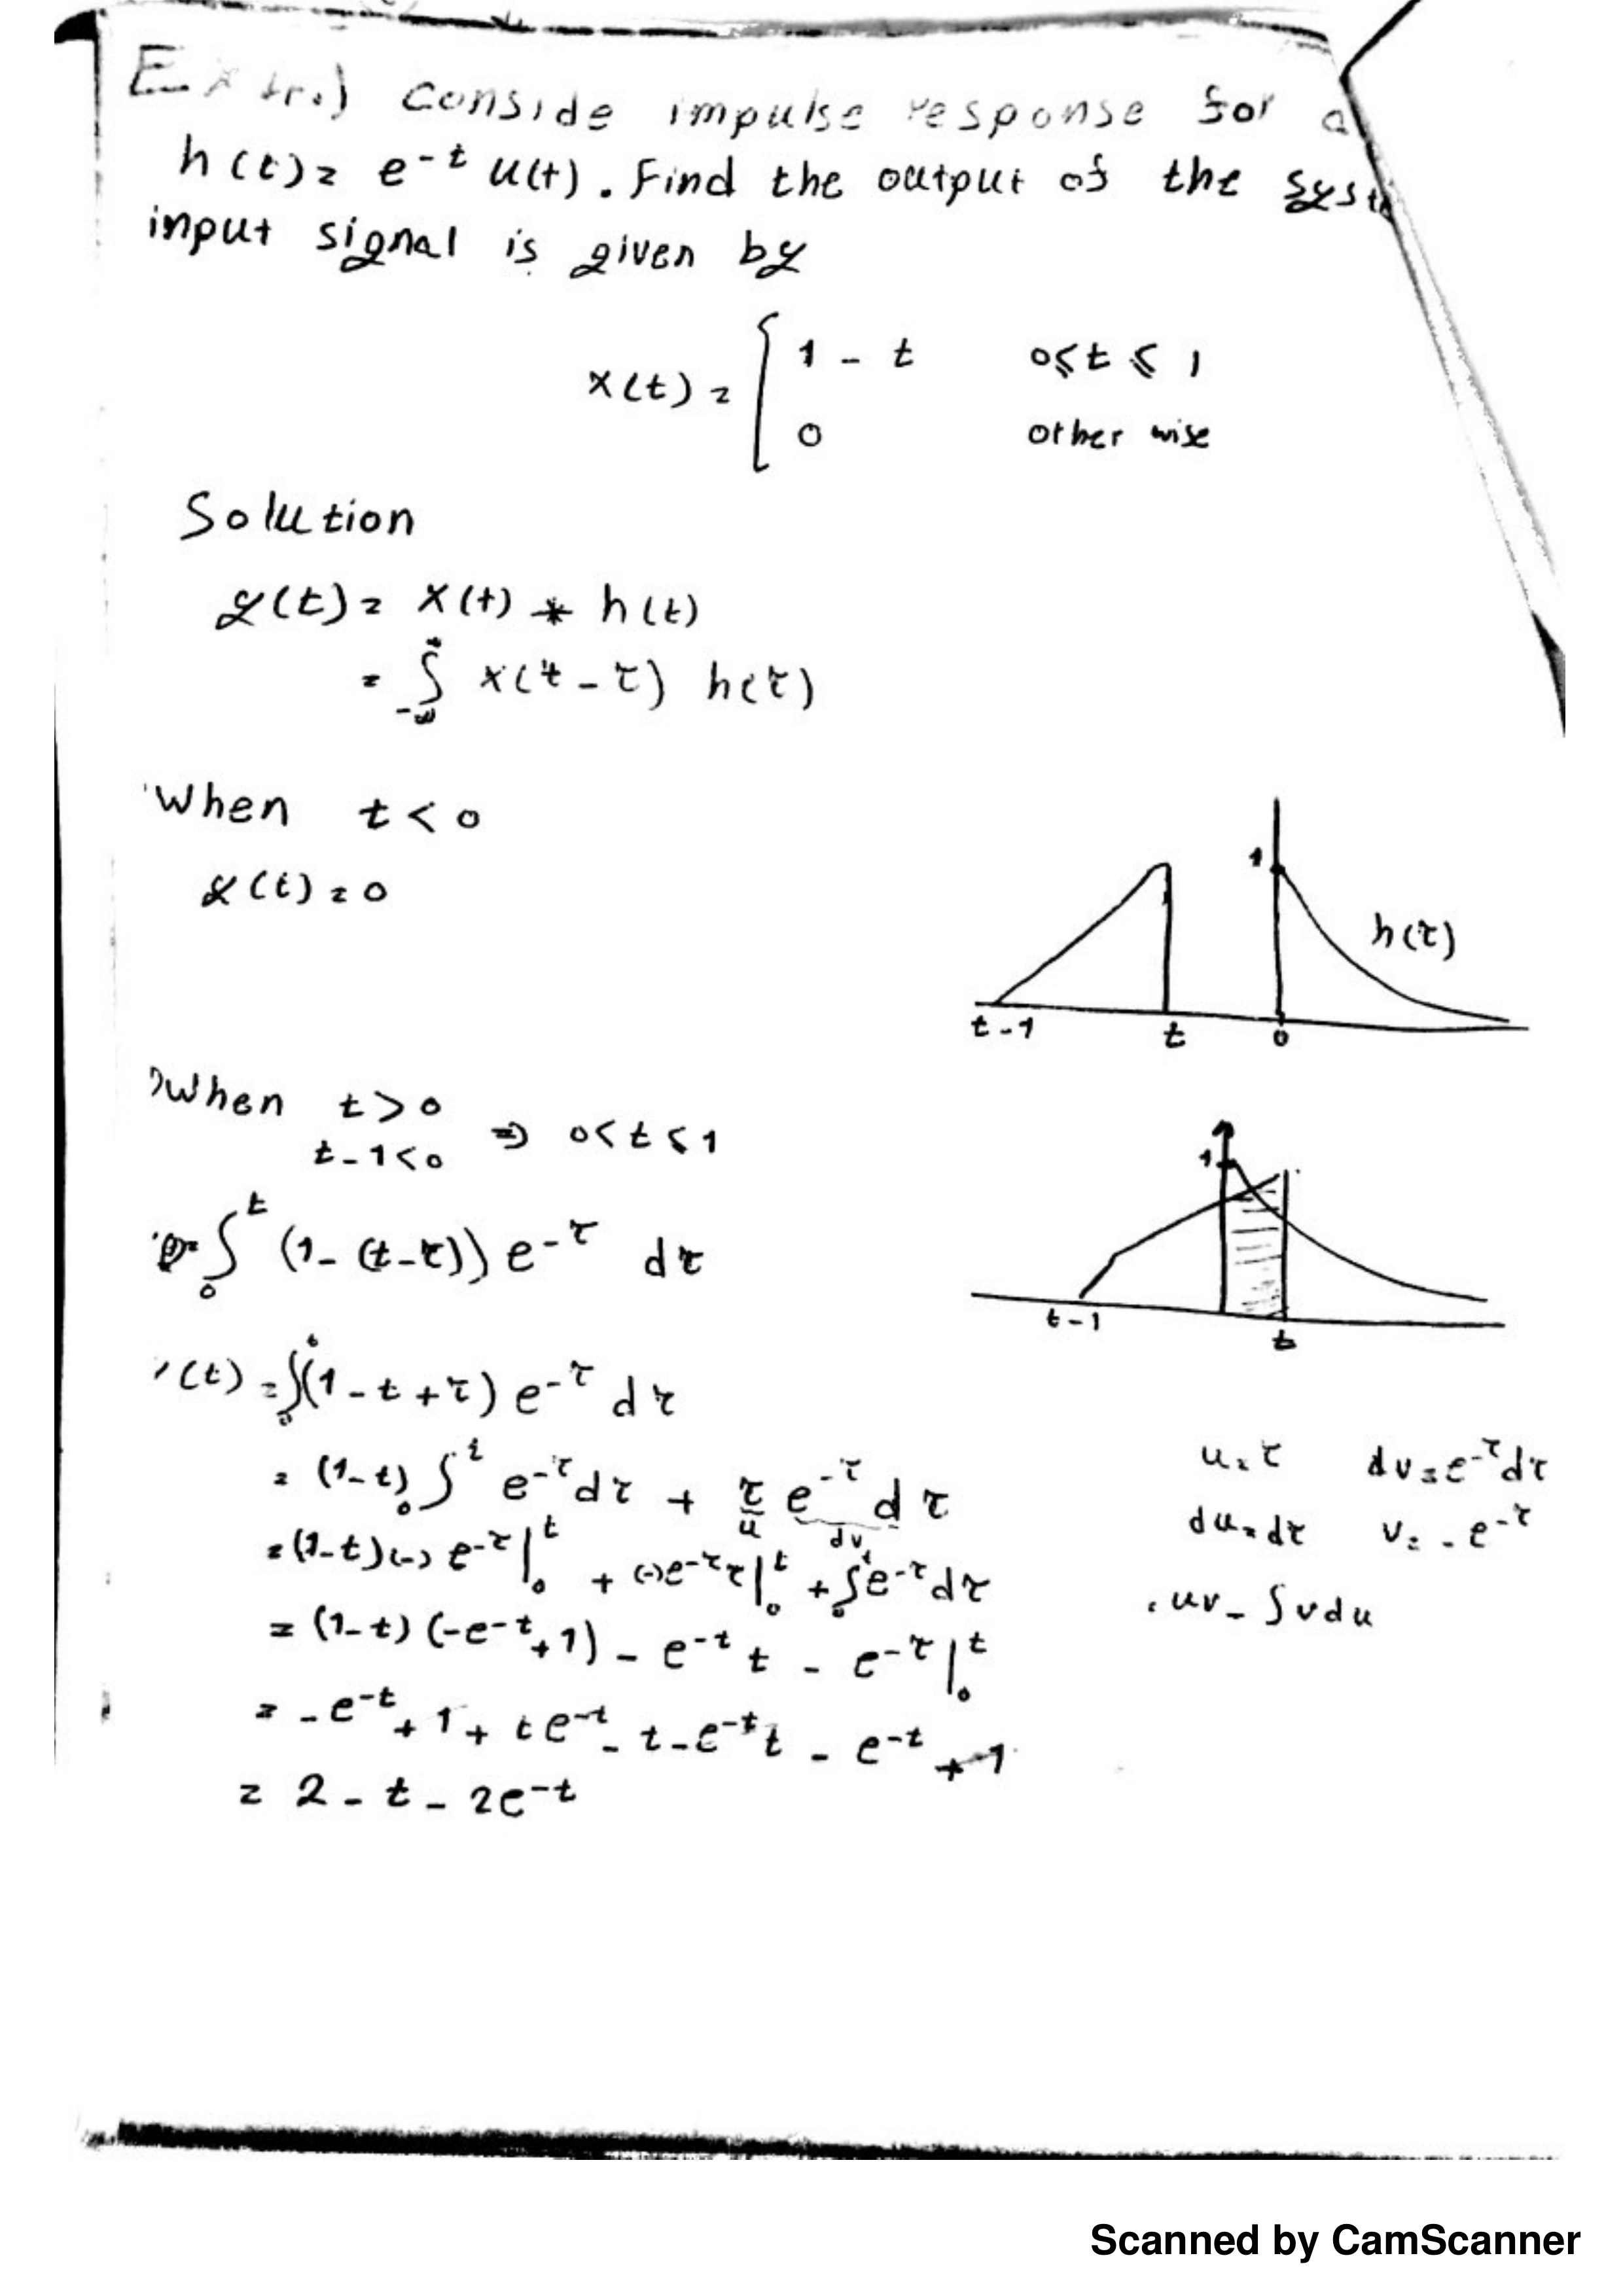 Conside impulse response for a
h(t)= e-t u(t). Find the output of the syst
input signal is given by
x(t)= 1 - t 0≤t≤1
0 other wise
Solution
y(t)= x(t) * h(t)
= ∫-∞^∞ x(t-τ) h(τ)
When t<0
y(t)=0
1
h(τ)
t-1 t 0
When t>0
t-1<0 ⇒ 0<t≤1
1
t-1 t
∫0^t (1-(t-τ)) e-τ dτ
(t) =∫0^t (1-t+τ) e-τ dτ
= (1-t) 0∫t e-τ dτ + τ e-τ d τ
u dv
u=τ dv=e-τdτ
du=dτ v=-e-τ
uv-∫vdu
=(1-t)(-) e-τ|0^t + (-)e-τ τ|0^t + ∫0^t e-τdτ
= (1-t) (-e-t+1) - e-t t - e-τ|0^t
= -e-t + 1 + te-t - t - e-t t - e-t + 1
= 2 - t - 2e-t
Scanned by CamScanner